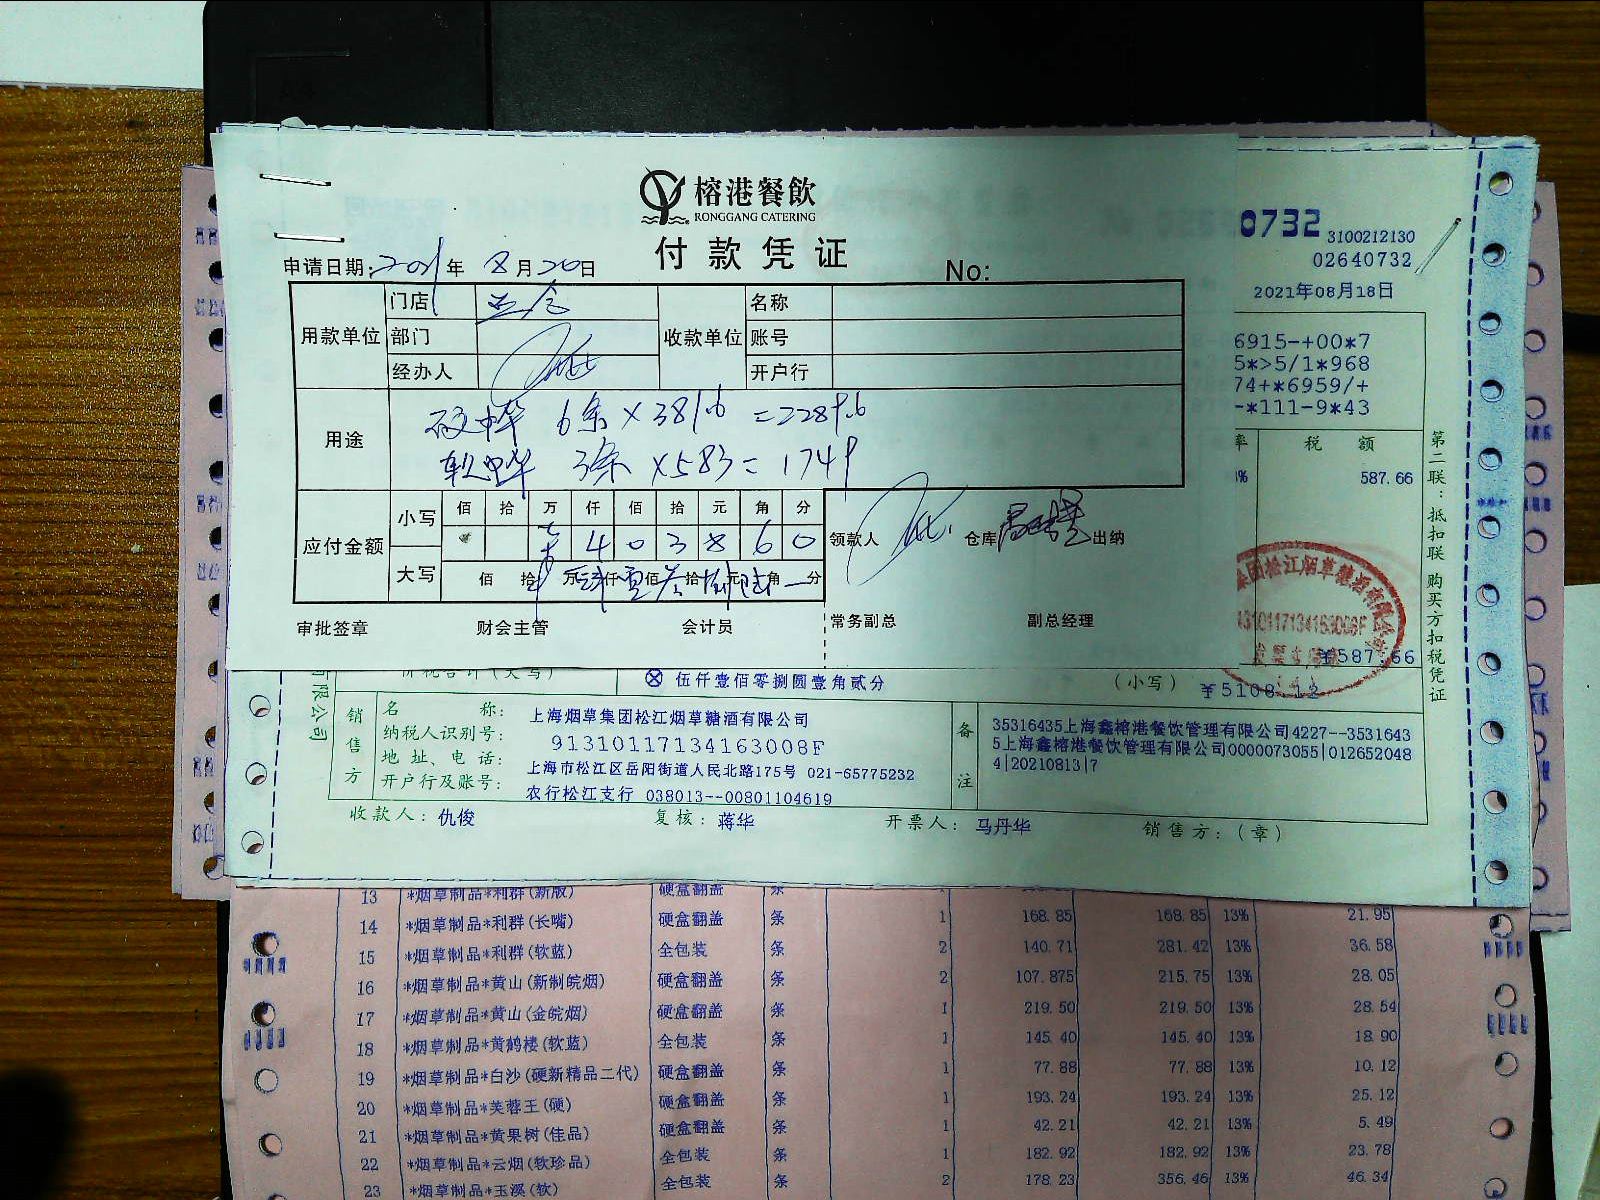 榕港餐飲
RONGGANG CATERING
付款凭证
申请日期: 2021年 8月20日
No:
用款单位
门店
部门
经办人
收款单位
名称
账号
开户行
用途
硬中华 6条×381.6=2289.6
软中华 3条×583=1749
应付金额
小写
佰 拾 万 仟 佰 拾 元 角 分
4 0 3 8 6 0
大写
佰 拾 万 仟 佰 拾 元 角 分
领款人
仓库
出纳
审批签章
财会主管
会计员
常务副总
副总经理
0732
3100212130
02640732
2021年08月18日
6915-+00*7
5*>5/1*968
74+*6959/+
-*111-9*43
率
税 额
587.66
¥587.66
第二联:抵扣联 购买方扣税凭证
价税合计(大写)
ⓧ 伍仟壹佰零捌圆壹角贰分
(小写) ¥5108.12
有限公司
销售方
名 称: 上海烟草集团松江烟草糖酒有限公司
纳税人识别号: 91310117134163008F
地址、电话: 上海市松江区岳阳街道人民北路175号 021-65775232
开户行及账号: 农行松江支行 038013--00801104619
备注
35316435上海鑫榕港餐饮管理有限公司4227--3531643
5上海鑫榕港餐饮管理有限公司0000073055|012652048
4|20210813|7
收款人: 仇俊
复核: 蒋华
开票人: 马丹华
销售方:(章)
13 *烟草制品*利群(新版) 硬盒翻盖 条
14 *烟草制品*利群(长嘴) 硬盒翻盖 条 1 168.85 168.85 13% 21.95
15 *烟草制品*利群(软蓝) 全包装 条 2 140.71 281.42 13% 36.58
16 *烟草制品*黄山(新制皖烟) 硬盒翻盖 条 2 107.875 215.75 13% 28.05
17 *烟草制品*黄山(金皖烟) 硬盒翻盖 条 1 219.50 219.50 13% 28.54
18 *烟草制品*黄鹤楼(软蓝) 全包装 条 1 145.40 145.40 13% 18.90
19 *烟草制品*白沙(硬新精品二代) 硬盒翻盖 条 1 77.88 77.88 13% 10.12
20 *烟草制品*芙蓉王(硬) 硬盒翻盖 条 1 193.24 193.24 13% 25.12
21 *烟草制品*黄果树(佳品) 硬盒翻盖 条 1 42.21 42.21 13% 5.49
22 *烟草制品*云烟(软珍品) 全包装 条 1 182.92 182.92 13% 23.78
23 *烟草制品*玉溪(软) 全包装 条 2 178.23 356.46 13% 46.34